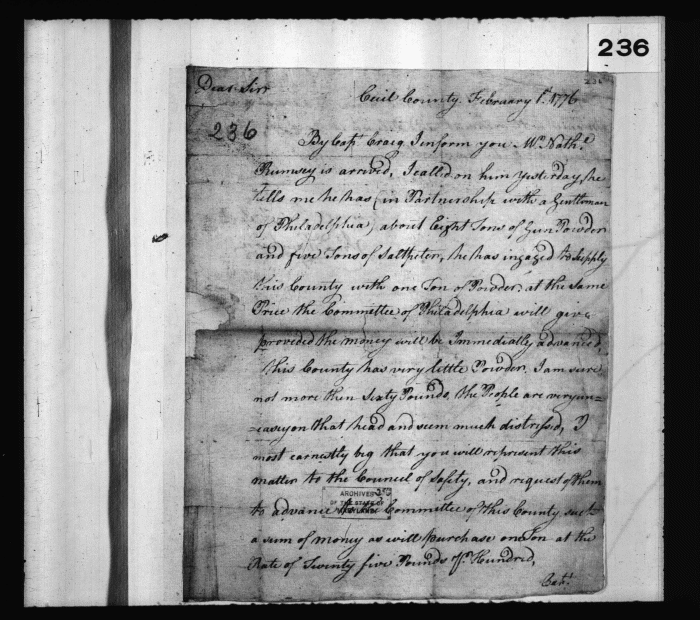 236
236
Dear Sirr
Cecil County. February 1st. 1776
236
By Capt. Craig I inform you Mr. Nathl.
Rumsey is arrived, I called on him yesterday, he
tells me he has (in Partnership with a Gentleman
of Philadelphia) about Eight Tons of Gun Powder
and five Tons of Saltpeter, he has ingaged to supply
this County with one Ton of Powder, at the same
Price the Committee of Philadelphia will give
provided the money will be Immediatly advanced,
this County has very little Powder, I am sure
not more then Sixty Pounds, the People are very un=
=easy on that head and seem much distressed, I
most earnestly big that you will represent this
matter to the Council of Safety, and request of them
to advance to the Committee of this County such
a sum of money as will purchase one Ton at the
Rate of Twenty five Pounds Pr. Hundred,
ARCHIVES
OF THE STATE OF
MARYLAND
Capt.